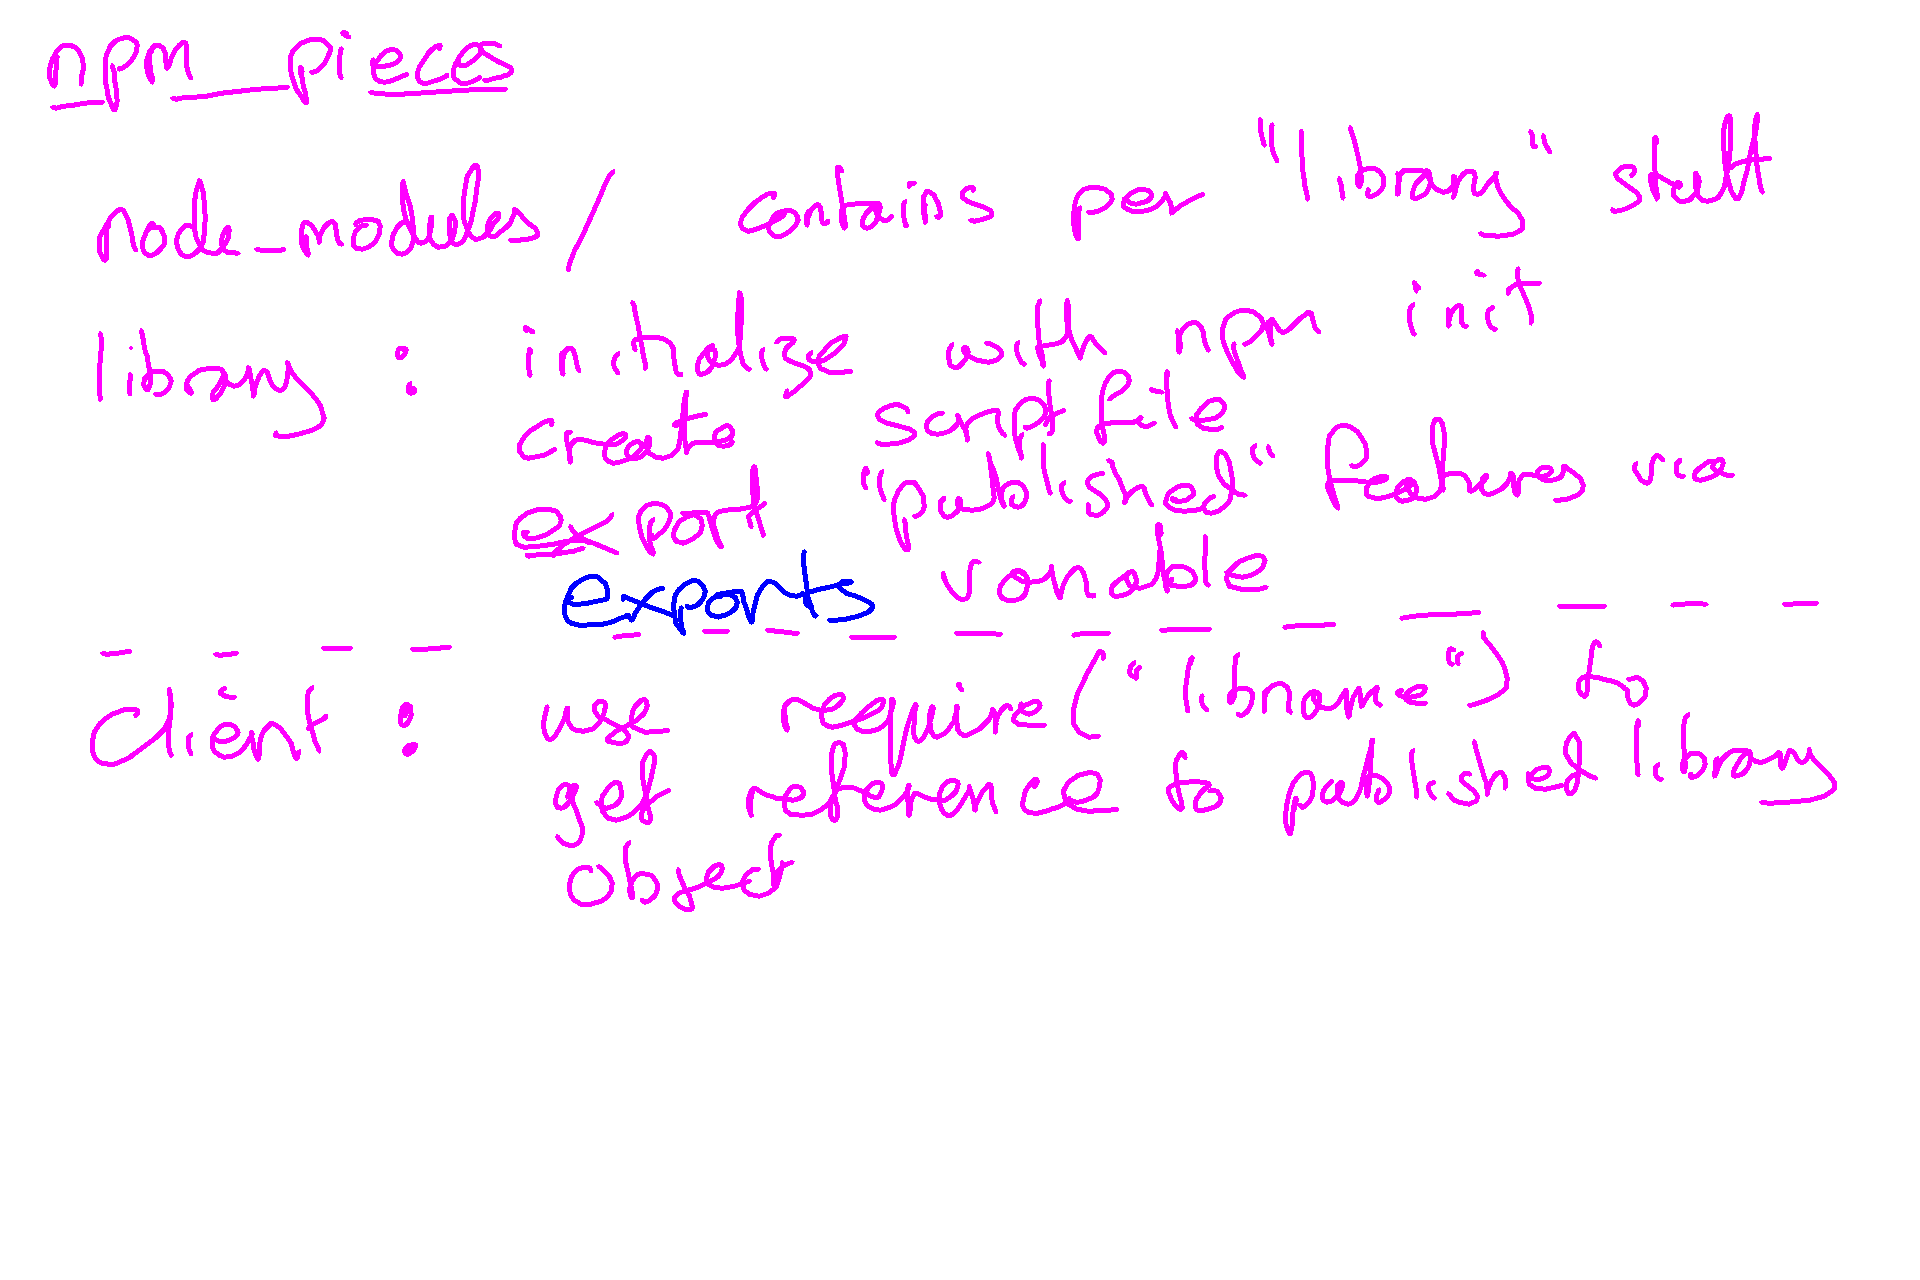 npm pieces
node_modules/ contains per "library" stuff
library : initialize with npm init
create script file
export "published" features via
exports variable
client : use require("libname") to
get reference to published library
object